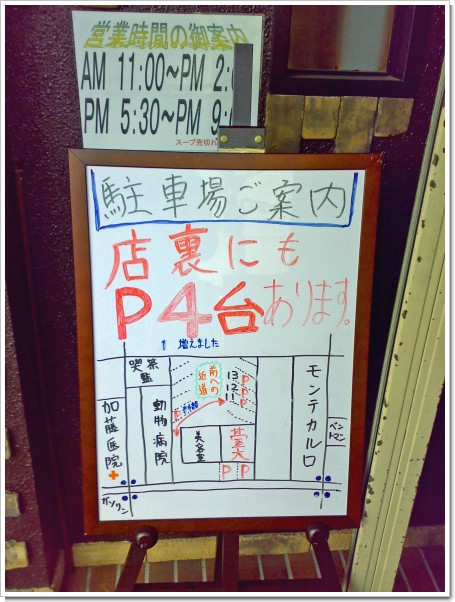 営業時間の御案内
AM 11:00~PM 2:
PM 5:30~PM 9:
スープ売切れ
駐車場ご案内
店裏にも
P4台あります。
1 増えました
喫茶
藍
加藤医院
動物病院
前への
近道
13
12
11
P
P
P
P
美容室
P P
モンテカルロ
ベント
マン
ガソリン